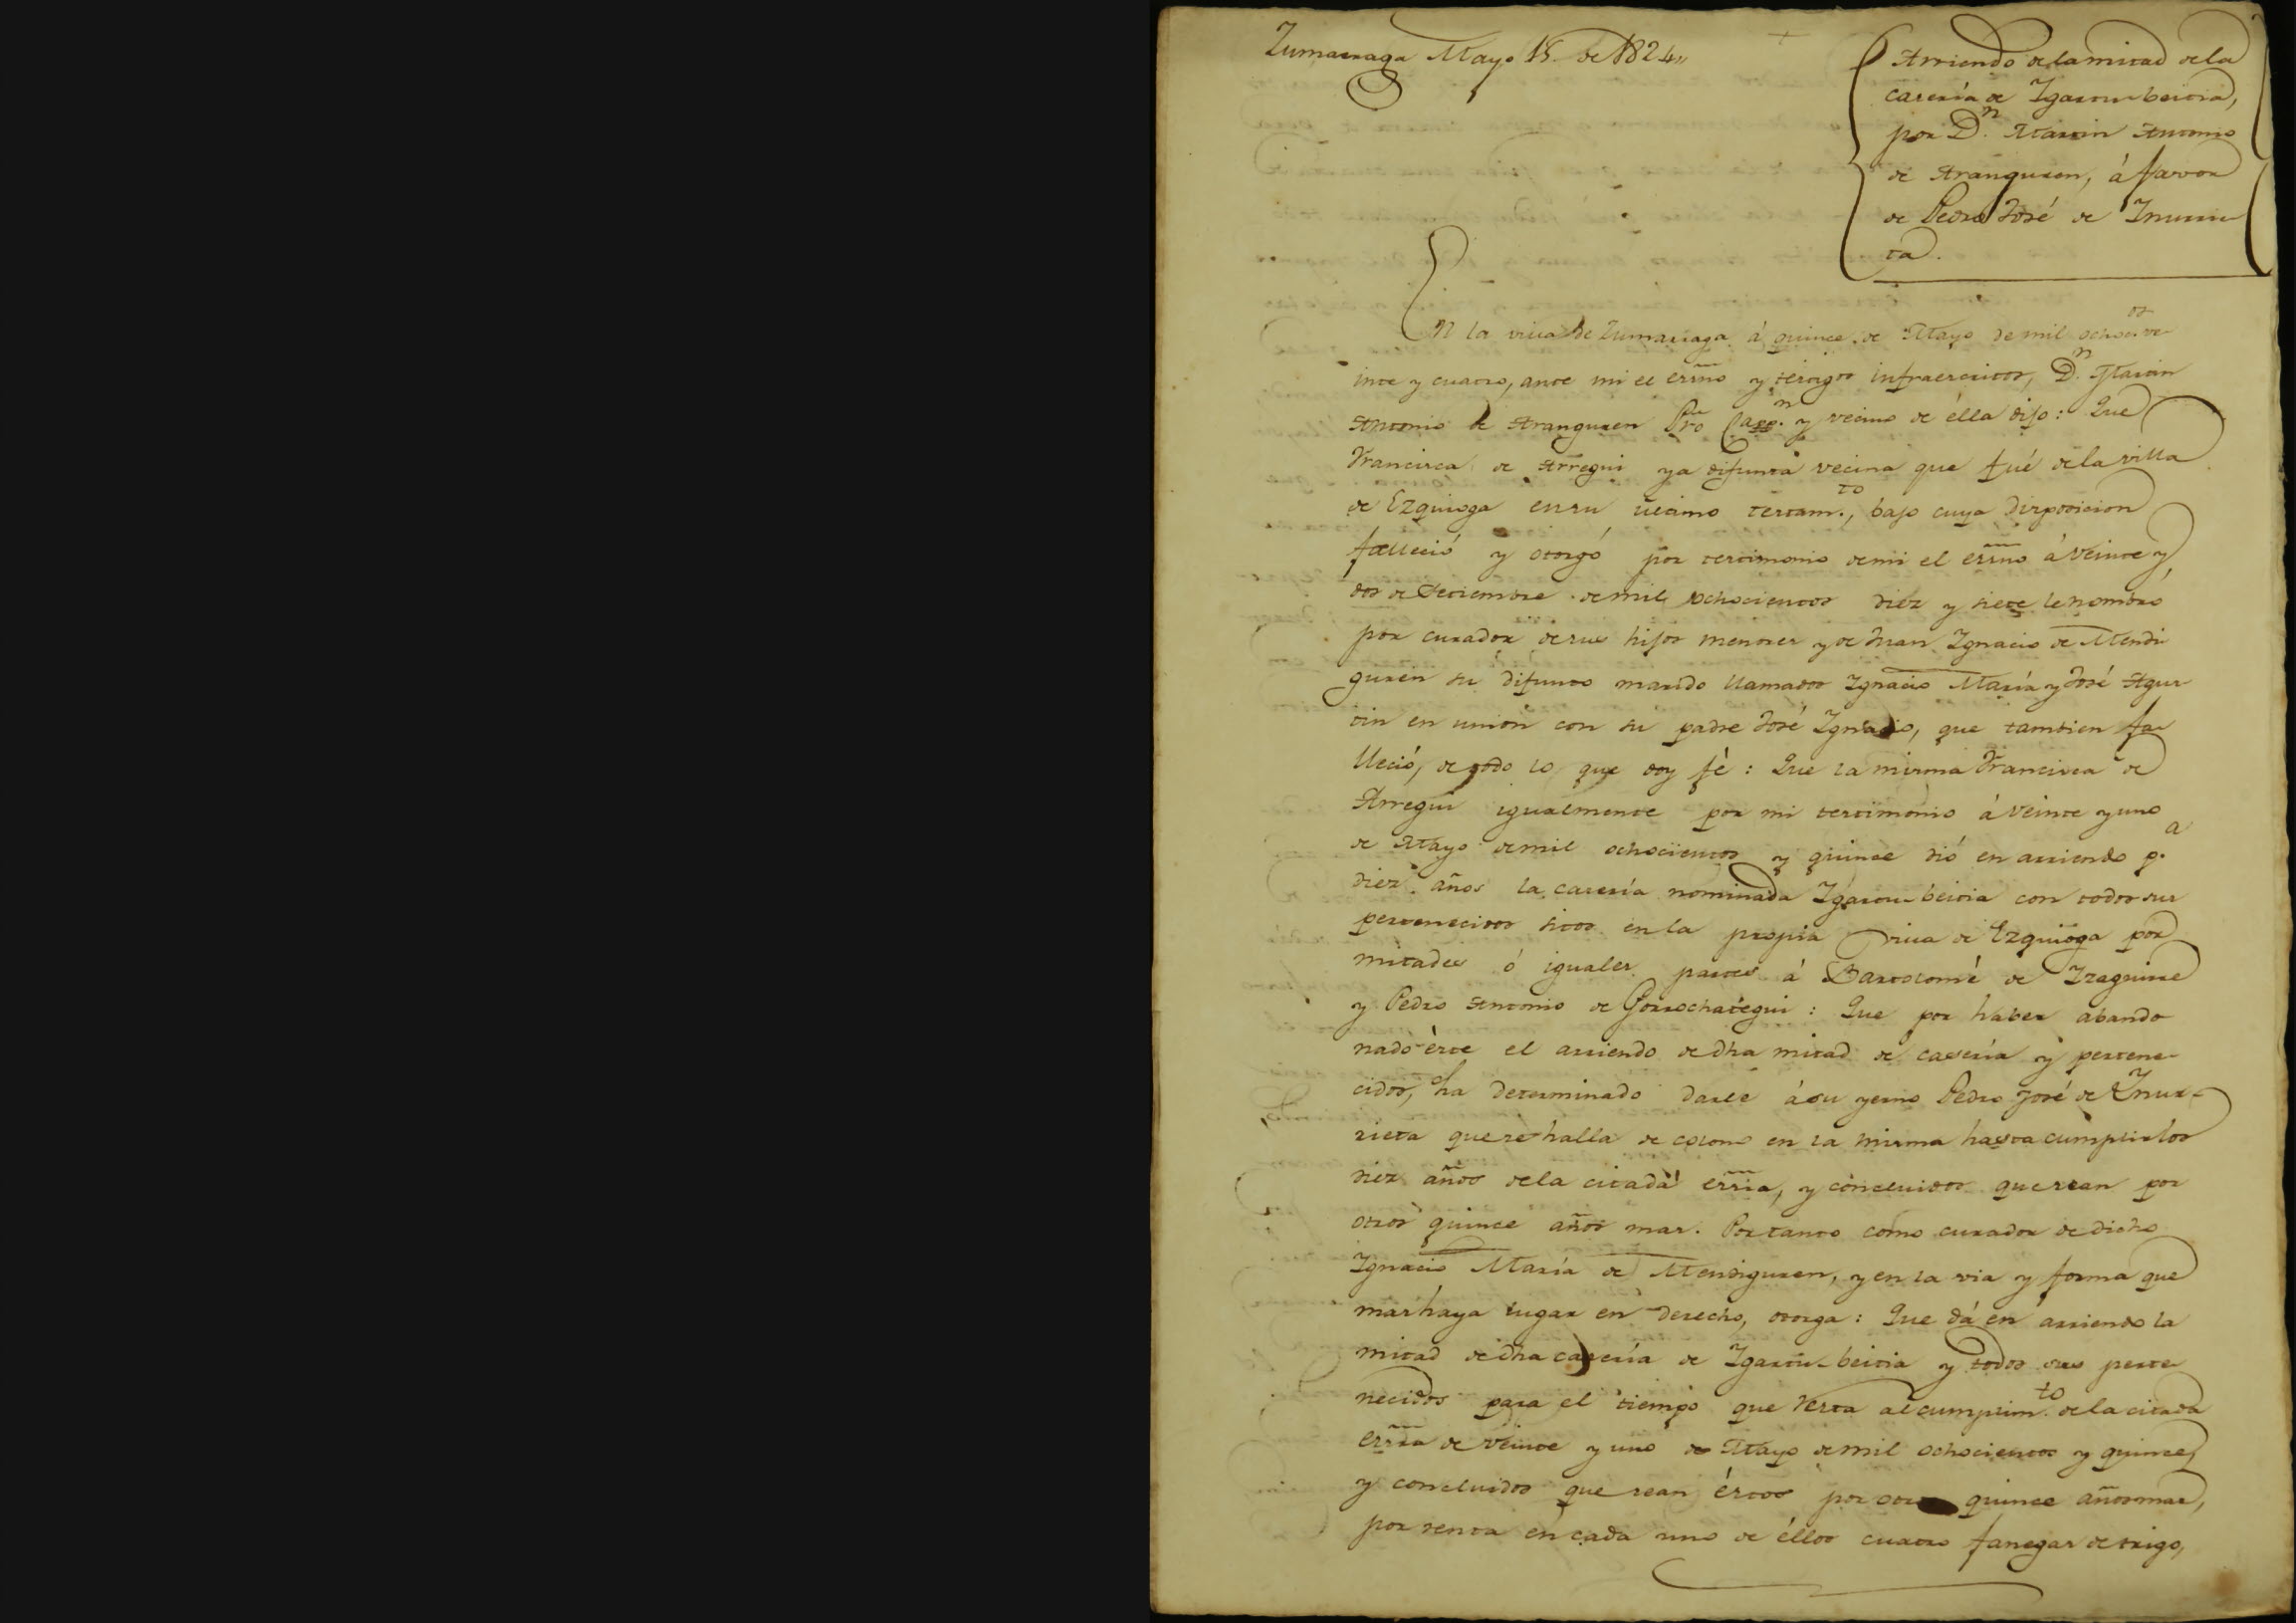 Zumarraga Mayo 15. de 1824„
Arriendo de la mitad de la
caseria de Ygartu-beitia,
por D.n Martin Antonio
de Aranguren, á favor
de Pedro José de Ynurrie-
ta.
En la villa de Zumarraga á quince de Mayo de mil ochoc.os ve-
inte y cuatro, ante mi el esrño y testigos infraescritos, D.n Martin
Antonio de Aranguren Pr̃o Capp.n y vecino de élla dijo: Que
Francisca de Arregui ya difunta vecina que fué de la villa
de Ezquioga en su ultimo testam.to, bajo cuya disposicion
falleció y otorgó por testimonio de mi el esrño á veinte y
dos de Setiembre de mil ochocientos diez y siete le nombró
por curador de sus hijos menores y de Juan Ygnacio de Mendi
guren su difunto marido llamados Ygnacio María y José Agus-
tin en unión con su padre José Ygnacio, que tambien fa-
lleció, de todo lo que doy fé: Que la misma Francisca de
Arregui igualmente por mi testimonio á veinte y uno
de Mayo de mil ochocientos y quince dió en arriendo p.a
diez años la caseria nominada Ygartu-beitia con todos sus
pertenecidos sitos en la propia villa de Ezquioga por
mitades ó iguales partes á Bartolomé de Yzaguirre
y Pedro Antonio de Gorrochategui: Que por haber abando
nado éste el arriendo de dha mitad de caseria y pertene-
cidos, ha determinado darle á su yerno Pedro José de Ynur-
rieta que se halla de colono en la misma hasta cumplir los
diez años de la citada esrr̃a, y concluidos que sean por
otros quince años mas. Por tanto como curador de dicho
Ygnacio María de Mendiguren, y en la via y forma que
mas haya lugar en derecho, otorga: Que dá en arriendo la
mitad de dha caseria de Ygartu-beitia y todos sus perte-
necidos para el tiempo que resta al cumplim.to de la citada
esrr̃a de veinte y uno de Mayo de mil ochocientos y quince,
y concluidos que sean éstos por otros quince años mas,
por renta en cada uno de éllos cuatro fanegas de trigo,